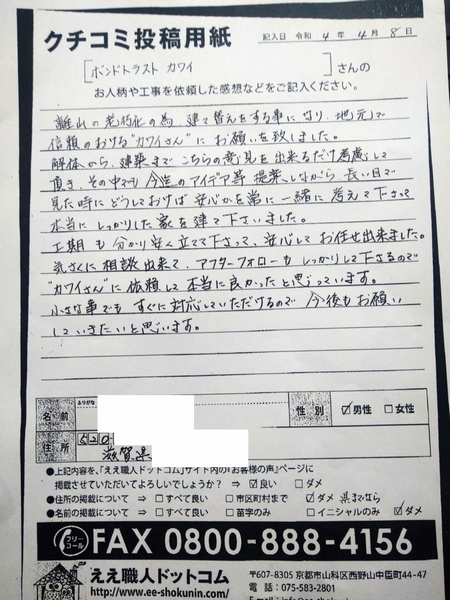 クチコミ投稿用紙
記入日 令和 4 年 4 月 8 日
[ボンドトラスト カワイ] さんの
お人柄や工事を依頼した感想などをご記入ください。
離山の老朽化の為、建て替えをする事になり、地元で
信頼のおける"カワイさん"にお願いを致しました。
解体から、建築までこちらの意見を出来るだけ考慮して
頂き、その中でも今迄のアイデア等提案しながら長い目で
見た時にどうしておけば安心かを常に一緒に考えて下さって
本当にしっかりした家を建て下さいました。
工期も分かり安く立てて下さって、安心してお任せ出来ました。
気さくに相談出来て、アフターフォローもしっかりして下さるので
"カワイさん"に依頼して本当に良かったと思っています。
小さな事でもすぐに対応していただけるので今後もお願い
していきたいと思います。
ふりがな
名前
性別 ☑男性 □女性
住所 520-
滋賀県
●上記内容を、「ええ職人ドットコム」サイト内の『お客様の声』ページに
掲載させていただいてよろしいでしょうか? ⇒ ☑良い □ダメ
●住所の掲載について ⇒ □すべて良い □市区町村まで ☑ダメ 県までなら
●名前の掲載について ⇒ □すべて良い □苗字のみ □イニシャルのみ ☑ダメ
フリーコール FAX 0800-888-4156
ええ職人ドットコム
http://www.ee-shokunin.com/
〒607-8305 京都市山科区西野山中臣町44-47
電話:075-583-2801